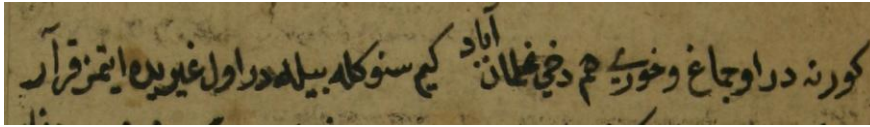 كورنه در اوجماغ وخوري هم دخي غلمان آباد كيم سنوكله بيله در اول غيريده ايتمز قرآر